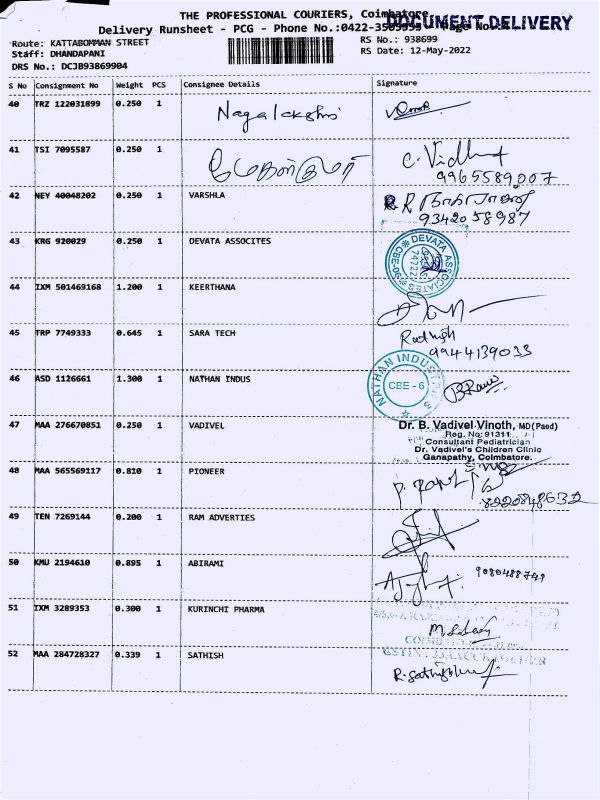 THE PROFESSIONAL COURIERS, Coimbatore
DOCUMENT DELIVERY
Delivery Runsheet - PCG - Phone No.:0422-
Route: KATTABOMMAN STREET RS No.: 938699
Staff: DHANDAPANI RS Date: 12-May-2022
DRS No.: DCJB93869904
S No Consignment No Weight PCS Consignee Details Signature
40 TRZ 122031899 0.250 1 Nagalakshmi
41 TSI 7095587 0.250 1 C. Vidhya
9965589007
42 NEY 40048202 0.250 1 VARSHLA
9342058987
43 KRG 920029 0.250 1 DEVATA ASSOCITES DEVATA ASSOCIATES
44 IXM 501469168 1.200 1 KEERTHANA
45 TRP 7749333 0.645 1 SARA TECH
9944139033
46 ASD 1126661 1.300 1 NATHAN INDUS NATHAN INDUSTRIES
CBE - 6
47 MAA 276670851 0.250 1 VADIVEL Dr. B. Vadivel Vinoth, MD(Paed)
Reg. No: 91311
Consultant Pediatrician
Dr. Vadivel's Children Clinic
Ganapathy, Coimbatore.
48 MAA 565569117 0.810 1 PIONEER
8220848632
49 TEN 7269144 0.200 1 RAM ADVERTIES
50 KMU 2194610 0.895 1 ABIRAMI 9080488749
51 IXM 3289353 0.300 1 KURINCHI PHARMA
52 MAA 284728327 0.339 1 SATHISH